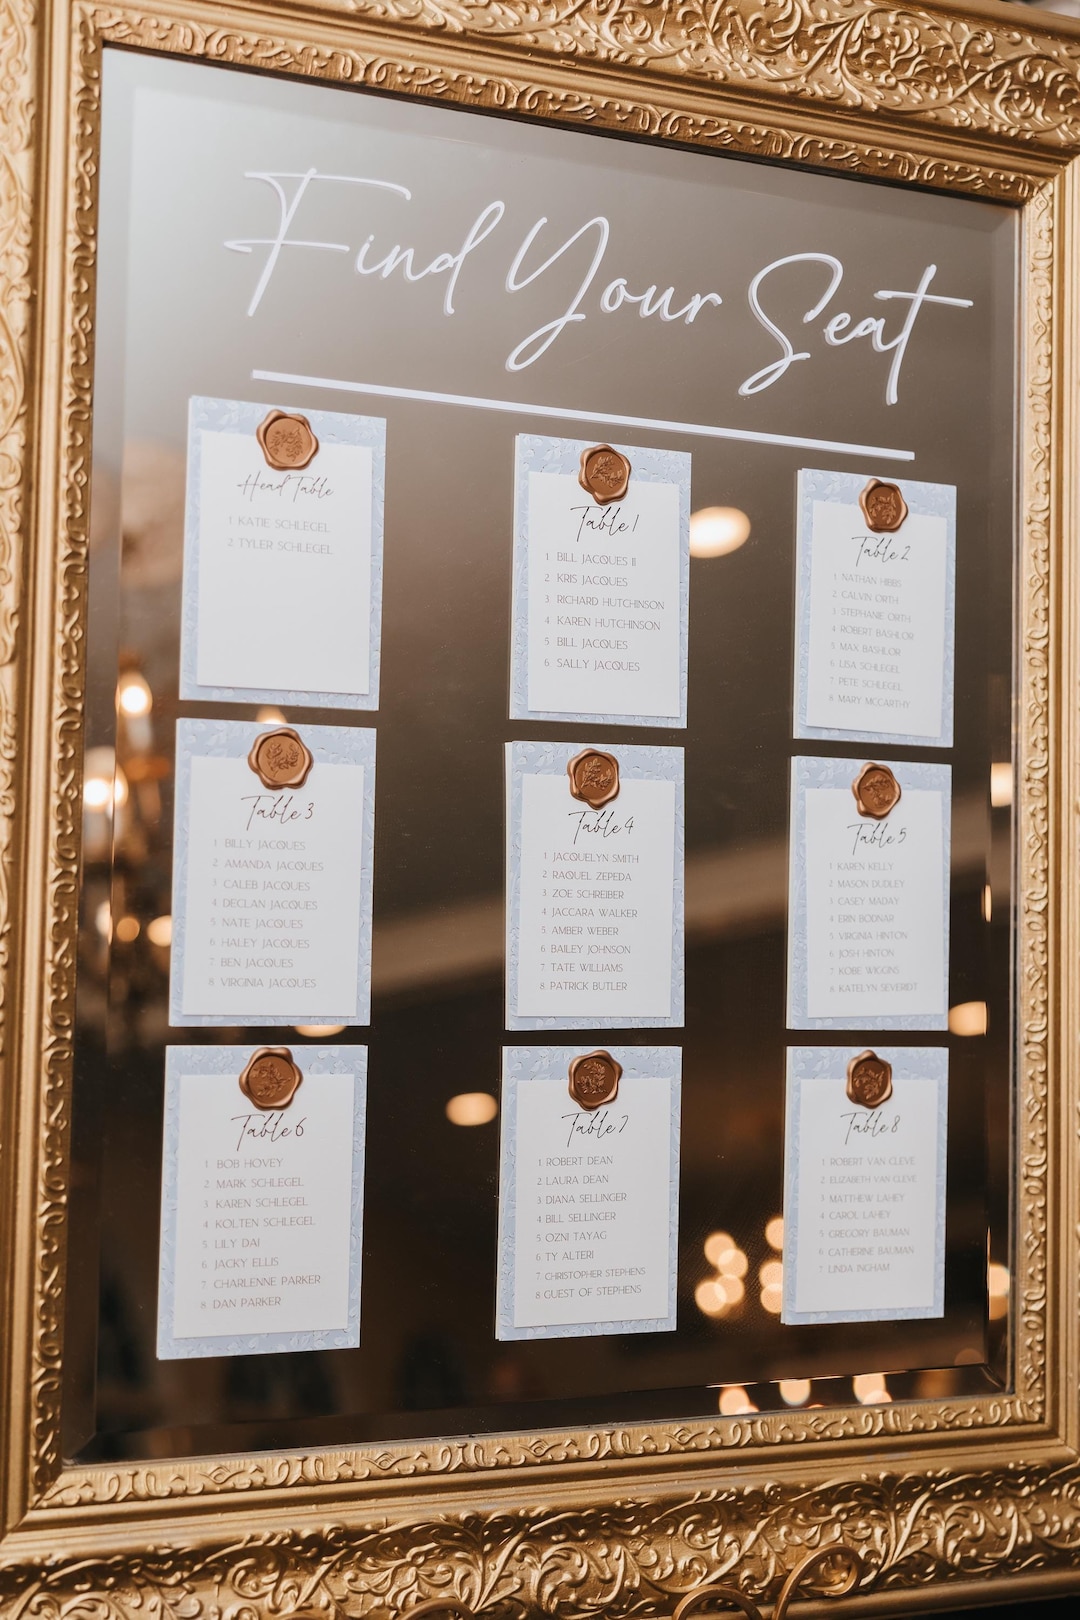 Find Your Seat
Head Table
1 KATIE SCHLEGEL
2 TYLER SCHLEGEL
Table 1
1 BILL JACQUES II
2 KRIS JACQUES
3 RICHARD HUTCHINSON
4 KAREN HUTCHINSON
5 BILL JACQUES
6 SALLY JACQUES
Table 2
1 NATHAN HIBBS
2 CALVIN ORTH
3 STEPHANIE ORTH
4 ROBERT BASHLOR
5 MAX BASHLOR
6 LISA SCHLEGEL
7 PETE SCHLEGEL
8 MARY MCCARTHY
Table 3
1 BILLY JACQUES
2 AMANDA JACQUES
3 CALEB JACQUES
4 DECLAN JACQUES
5 NATE JACQUES
6 HALEY JACQUES
7 BEN JACQUES
8 VIRGINIA JACQUES
Table 4
1 JACQUELYN SMITH
2 RAQUEL ZEPEDA
3 ZOE SCHREIBER
4 JACCARA WALKER
5 AMBER WEBER
6 BAILEY JOHNSON
7 TATE WILLIAMS
8 PATRICK BUTLER
Table 5
1 KAREN KELLY
2 MASON DUDLEY
3 CASEY MADAY
4 ERIN BODNAR
5 VIRGINIA HINTON
6 JOSH HINTON
7 KOBE WIGGINS
8 KATELYN SEVERIDT
Table 6
1 BOB HOVEY
2 MARK SCHLEGEL
3 KAREN SCHLEGEL
4 KOLTEN SCHLEGEL
5 LILY DAI
6 JACKY ELLIS
7 CHARLENNE PARKER
8 DAN PARKER
Table 7
1 ROBERT DEAN
2 LAURA DEAN
3 DIANA SELLINGER
4 BILL SELLINGER
5 OZNI TAYAG
6 TY ALTERI
7 CHRISTOPHER STEPHENS
8 GUEST OF STEPHENS
Table 8
1 ROBERT VAN CLEVE
2 ELIZABETH VAN CLEVE
3 MATTHEW LAHEY
4 CAROL LAHEY
5 GREGORY BAUMAN
6 CATHERINE BAUMAN
7 LINDA INGHAM